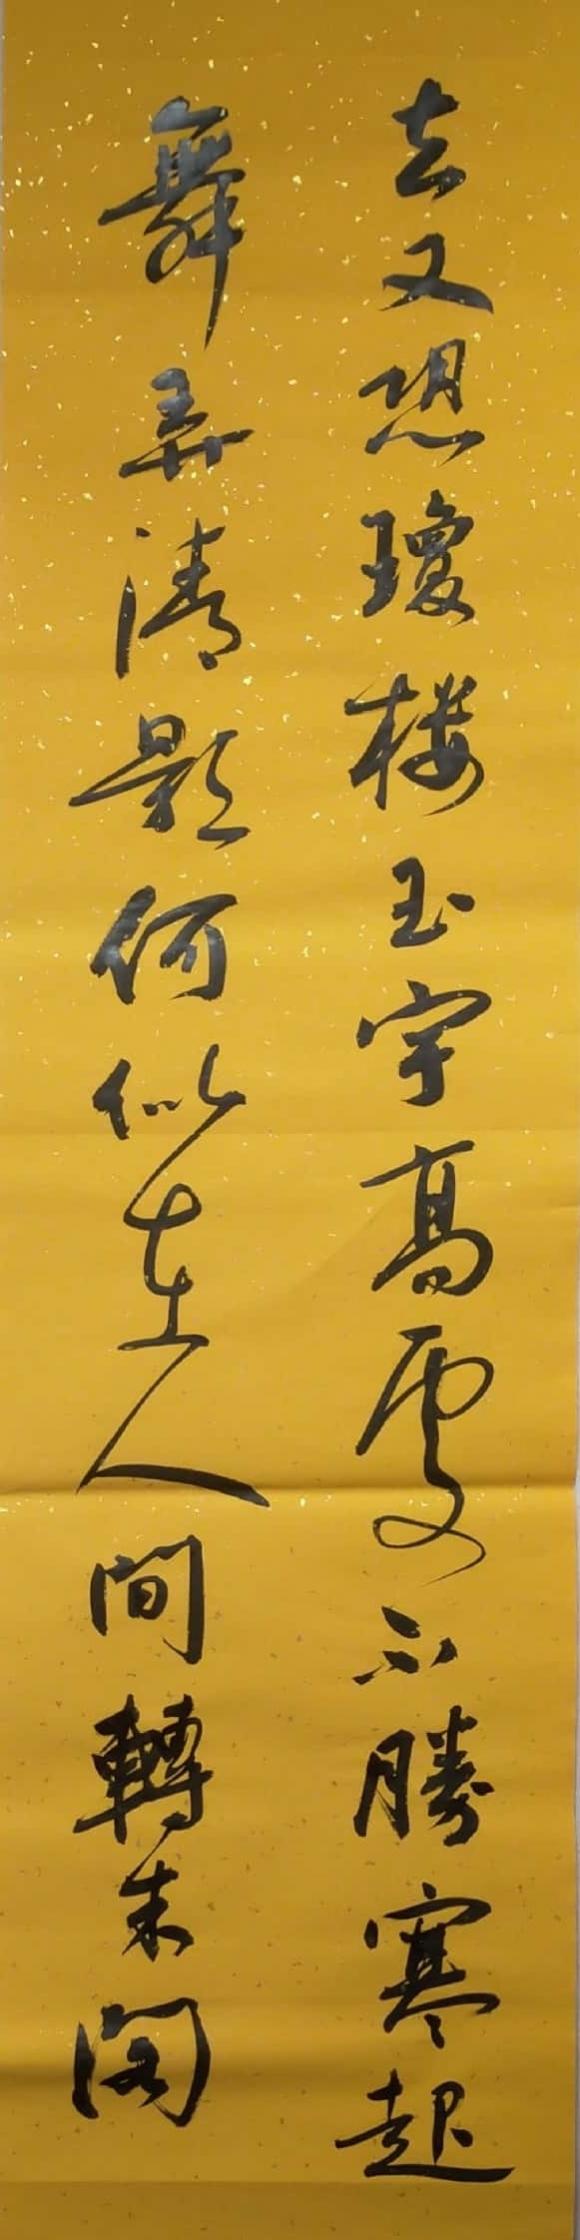 去又恐瓊樓玉宇高處不勝寒起
舞弄清影何似在人間轉朱閣